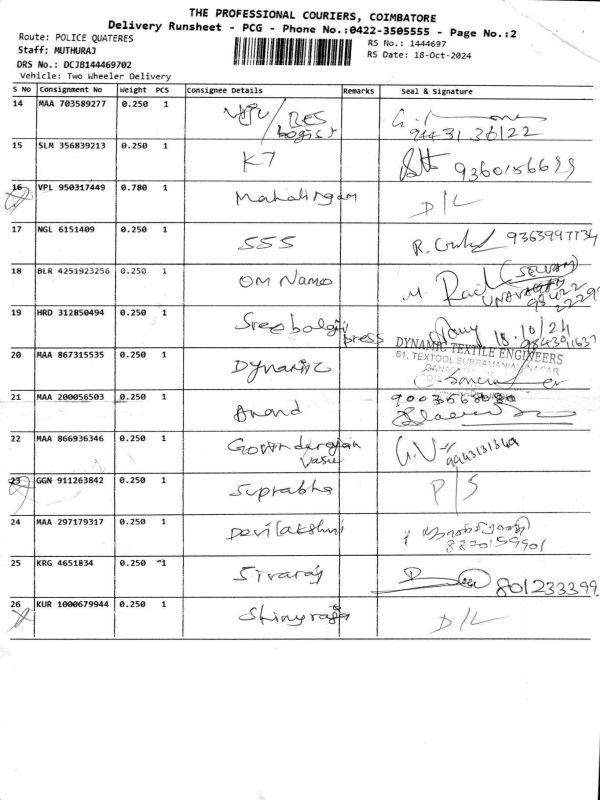 THE PROFESSIONAL COURIERS, COIMBATORE
Delivery Runsheet - PCG - Phone No.:0422-3505555 - Page No.:2
Route: POLICE QUATERES
RS No.: 1444697
Staff: MUTHURAJ
RS Date: 18-Oct-2024
DRS No.: DCJB144469702
Vehicle: Two Wheeler Delivery
S No Consignment No Weight PCS Consignee Details Remarks Seal & Signature
14 MAA 703589277 0.250 1
9443136122
15 SLM 356839213 0.250 1 K7
16 VPL 950317449 0.780 1 Mahalingam D/L
17 NGL 6151409 0.250 1 SSS
18 BLR 4251923256 0.250 1 OM Namo (SELVAM)
19 HRD 312850494 0.250 1 Sree balaji press 18.10/24
20 MAA 867315535 0.250 1 Dynamic DYNAMIC TEXTILE ENGINEERS
61, TEXTOOL SUBRAMANIAM NAGAR
21 MAA 200056503 0.250 1 Anand
22 MAA 866936346 0.250 1
23 GGN 911263842 0.250 1 Suprabha P/S
24 MAA 297179317 0.250 1 Devi lakshmi
25 KRG 4651834 0.250 1 Sivaraj 801233399
26 KUR 1000679944 0.250 1 Shinyraja D/L